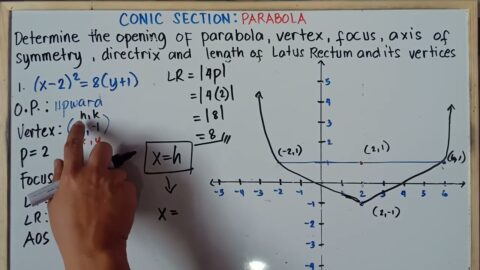 CONIC SECTION: PARABOLA
Determine the opening of parabola, vertex, focus, axis of
symmetry, directrix and length of Latus Rectum and its vertices
1. (x-2)² = 8(y+1)
O.P.: upward
h, k
Vertex: -1
P = 2
Focus
LR:
AOS
LR = |4p|
= |4(2)|
= |8|
= 8
x=h
x =
5
4
3
2
1
-1
-2
-3
-4
-5 -4 -3 -2 -1 0 1 2 3 4 5 6
(-2,1)
(2,1)
(6,1)
(2,-1)